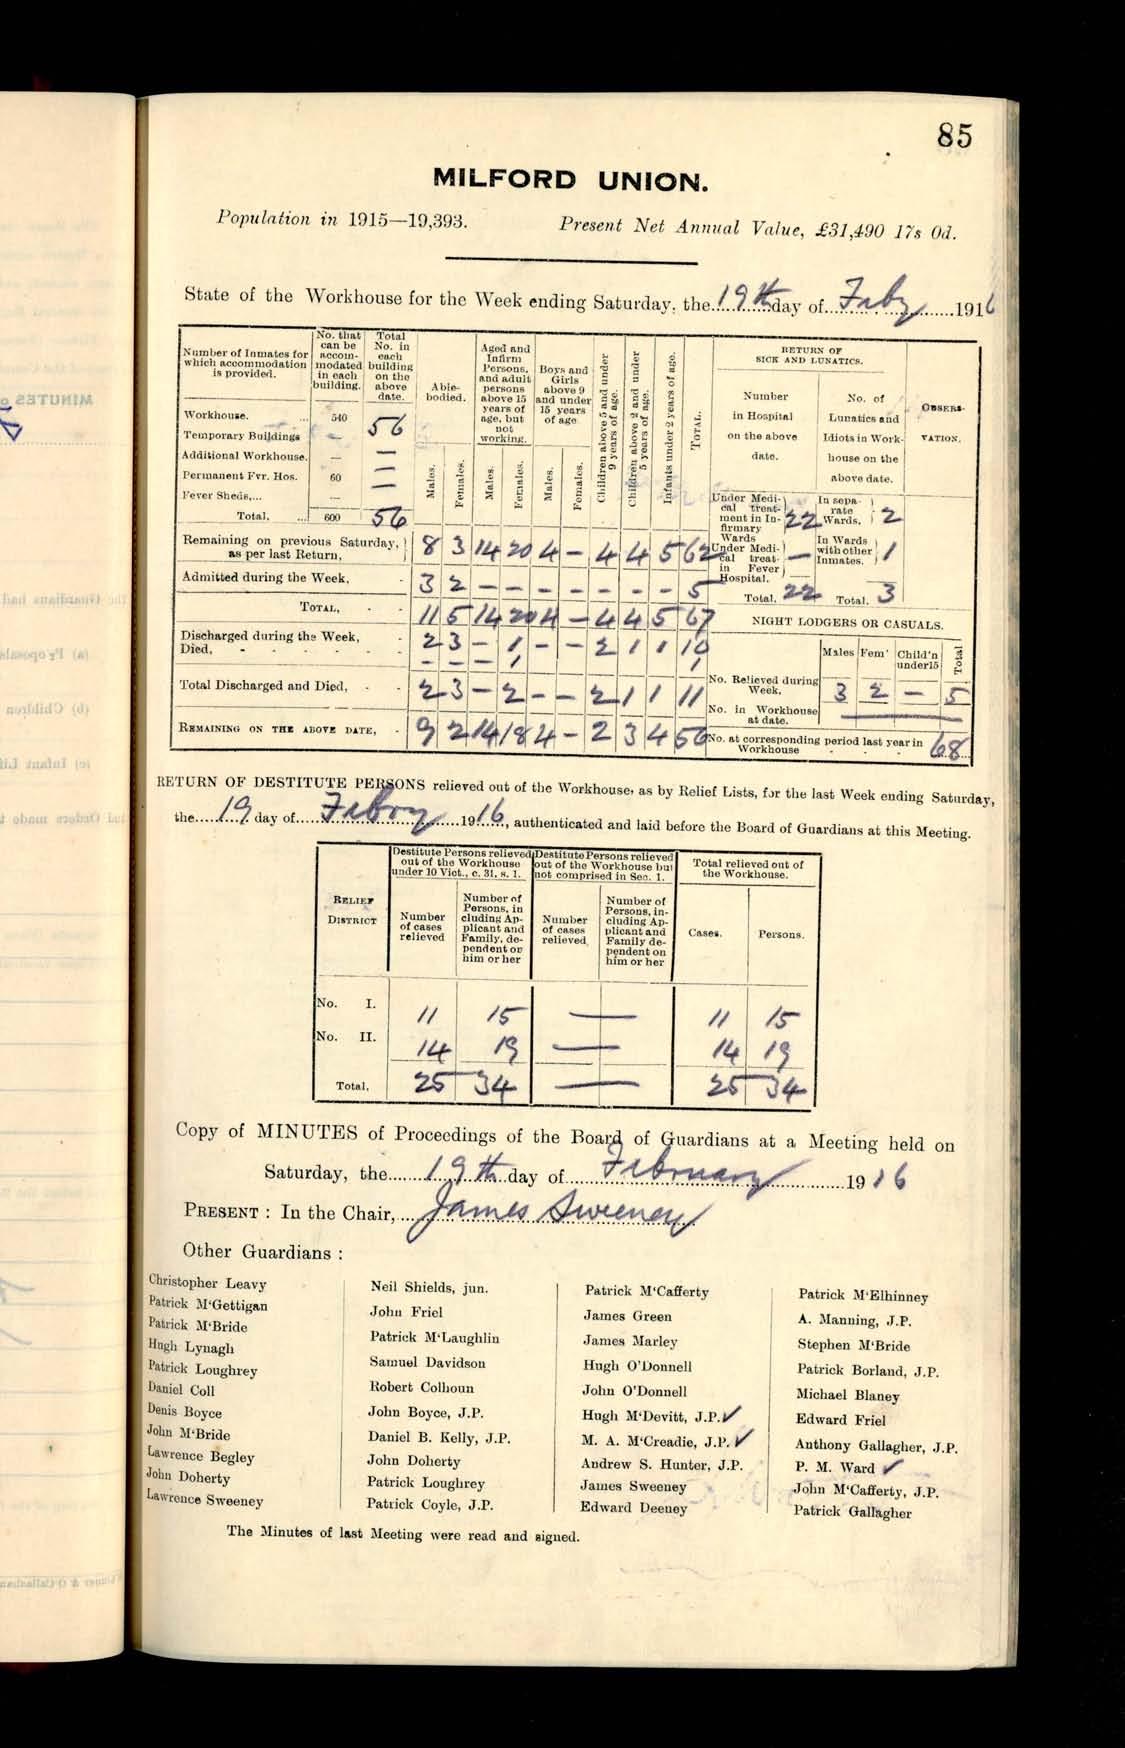 85
MILFORD UNION.
Population in 1915—19,393. Present Net Annual Value, £31,490 17s 0d.
State of the Workhouse for the Week ending Saturday, the 19th day of Feby 1916
Number of Inmates for which accommodation is provided. No. that can be accommodated in each building. Total No. in each building on the above date.
Able-bodied. Aged and Infirm Persons, and adult persons above 15 years of age, but not working. Boys and Girls above 9 and under 15 years of age Children above 5 and under 9 years of age. Children above 2 and under 5 years of age. Infants under 2 years of age. TOTAL.
Males. Females. Males. Females. Males. Females.
Workhouse. ... 540 56
Temporary Buildings — —
Additional Workhouse. — —
Permanent Fvr. Hos. 60 —
Fever Sheds,... —
Total, ... 600 56
Remaining on previous Saturday, as per last Return, 8 3 14 20 4 – 4 4 5 62
Admitted during the Week, - 3 2 – – – – – – – 5
TOTAL, - - 11 5 14 20 4 – 4 4 5 67
Discharged during the Week, - 2 3 – 1 – – 2 1 1 10
Died, - - - - - – – – 1 1
Total Discharged and Died, - - 2 3 – 2 – – 2 1 1 11
REMAINING ON THE ABOVE DATE, - 9 2 14 18 4 – 2 3 4 56
RETURN OF
SICK AND LUNATICS.
Number in Hospital on the above date.
No. of Lunatics and Idiots in Workhouse on the above date.
OBSERVATION.
Under Medical treatment in Infirmary Wards 22
In separate Wards. 2
Under Medical treat- in Fever Hospital. —
In Wards with other Inmates. 1
Total, 22 Total. 3
NIGHT LODGERS OR CASUALS.
Males Fem' Child'n under15 Total
No. Relieved during Week, 3 2 — 5
No. in Workhouse at date. —
No. at corresponding period last year in Workhouse - - - 68
RETURN OF DESTITUTE PERSONS relieved out of the Workhouse, as by Relief Lists, for the last Week ending Saturday,
the 19 day of Febry 1916, authenticated and laid before the Board of Guardians at this Meeting.
RELIEF DISTRICT
Destitute Persons relieved out of the Workhouse under 10 Vict., c. 31, s. 1.
Destitute Persons relieved out of the Workhouse but not comprised in Sec. 1.
Total relieved out of the Workhouse.
Number of cases relieved
Number of Persons, in cluding Applicant and Family, dependent on him or her
Number of cases relieved,
Number of Persons, including Applicant and Family dependent on him or her
Cases. Persons.
No. I. 11 15 — 11 15
No. II. 14 19 — 14 19
Total, 25 34 — 25 34
Copy of MINUTES of Proceedings of the Board of Guardians at a Meeting held on
Saturday, the 19th day of February 1916
PRESENT : In the Chair, James Sweeney
Other Guardians :
Christopher Leavy
Patrick M'Gettigan
Patrick M'Bride
Hugh Lynagh
Patrick Loughrey
Daniel Coll
Denis Boyce
John M'Bride
Lawrence Begley
John Doherty
Lawrence Sweeney
Neil Shields, jun.
John Friel
Patrick M'Laughlin
Samuel Davidson
Robert Colhoun
John Boyce, J.P.
Daniel B. Kelly, J.P.
John Doherty
Patrick Loughrey
Patrick Coyle, J.P.
Patrick M'Cafferty
James Green
James Marley
Hugh O'Donnell
John O'Donnell
Hugh M'Devitt, J.P. ✓
M. A. M'Creadie, J.P. ✓
Andrew S. Hunter, J.P.
James Sweeney
Edward Deeney
Patrick M'Elhinney
A. Manning, J.P.
Stephen M'Bride
Patrick Borland, J.P.
Michael Blaney
Edward Friel
Anthony Gallagher, J.P.
P. M. Ward ✓
John M'Cafferty, J.P.
Patrick Gallagher
The Minutes of last Meeting were read and signed.